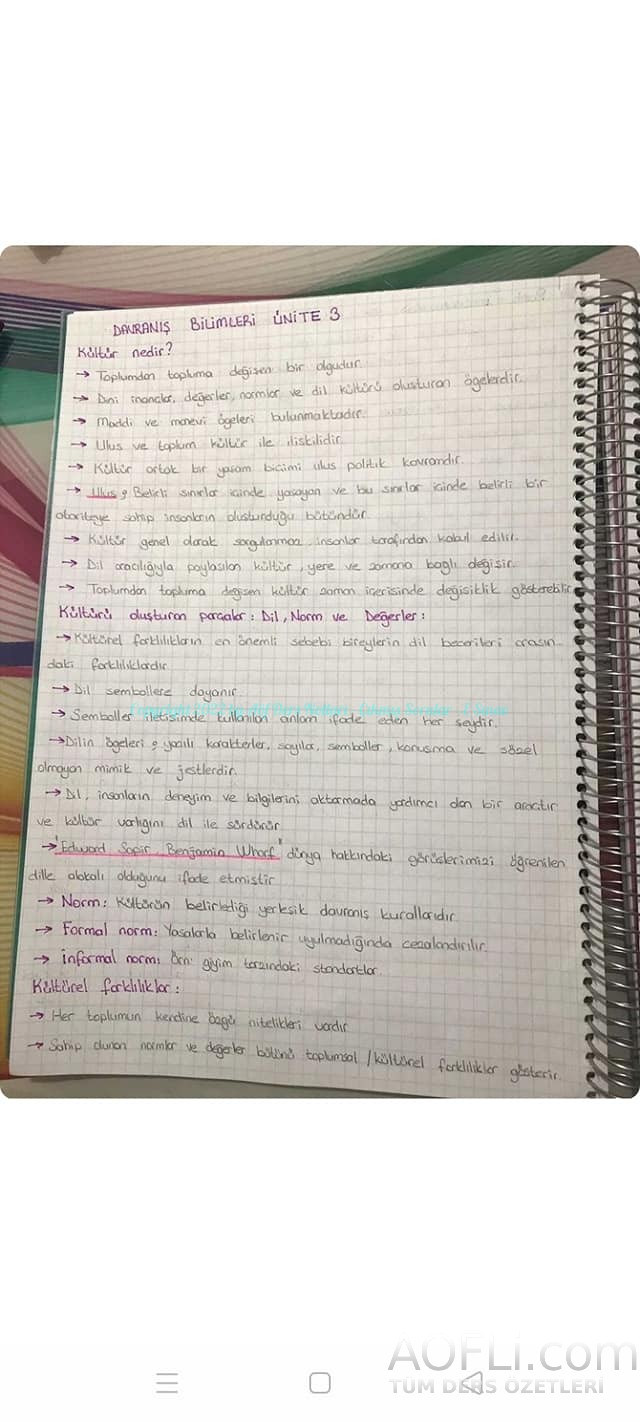 DAVRANIŞ BİLİMLERİ ÜNİTE 3
Kültür nedir?
→ Toplumdan topluma değişen bir olgudur.
→ Dini inanclar, değerler, normlar ve dil kültürü oluşturan ögelerdir.
→ Maddi ve manevi ögeleri bulunmaktadır.
→ Ulus ve toplum kültür ile ilişkilidir.
→ Kültür ortak bir yaşam biçimi ulus politik kavramdır.
→ Ulus; Belirli sınırlar içinde yaşayan ve bu sınırlar içinde belirli bir
otoriteye sahip insanların oluşturduğu bütündür.
→ Kültür genel olarak sorgulanmaz, insanlar tarafından kabul edilir.
→ Dil aracılığıyla paylaşılan kültür, yere ve zamana bağlı değişir.
→ Toplumdan topluma değişen kültür zaman içerisinde değişiklik gösterebilir.
Kültürü oluşturan parçalar: Dil, Norm ve Değerler:
→ Kültürel farklılıkların en önemli sebebi bireylerin dil becerileri arasın-
daki farklılıklardır.
→ Dil sembollere dayanır.
→ Semboller iletişimde kullanılan anlam ifade eden her şeydir.
→ Dilin ögeleri; yazılı karakterler, sayılar, semboller, konuşma ve sözel
olmayan mimik ve jestlerdir.
→ Dil, insanların deneyim ve bilgilerini aktarmada yardımcı olan bir araçtır
ve kültür varlığını dil ile sürdürür.
→ 'Edward Sapir, Benjamin Whorf' dünya hakkındaki görüşlerimizi öğrenilen
dille alakalı olduğunu ifade etmiştir.
→ Norm: Kültürün belirlediği yerleşik davranış kurallarıdır.
→ Formal norm: Yasalarla belirlenir uyulmadığında cezalandırılır.
→ İnformal norm: Örn: giyim tarzındaki standartlar.
Kültürel farklılıklar:
→ Her toplumun kendine özgü nitelikleri vardır.
→ Sahip olunan normlar ve değerler bütünü toplumsal / kültürel farklılıklar gösterir.
AOFLi.com
TÜM DERS ÖZETLERİ